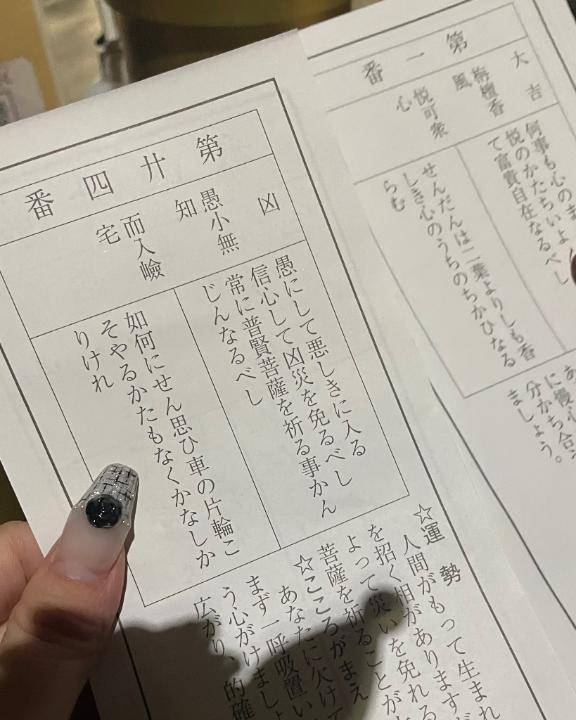 第廿四番
凶
愚小無
知
而入嶮
宅
愚にして悪しきに入る
信心して凶災を免るべし
常に普賢菩薩を祈る事かん
じんなるべし
如何にせん思ひ車の片輪こ
そやるかたもなくかなしか
りけれ
☆運勢
人間がもって生まれ
を招く相があります
よって災いを免れる
菩薩を祈ることが
☆こころがまえ
あなたに欠けて
まず一呼吸置い
う心がけましょ
広がり、的確
第一番
大吉
栴檀香
風
悦可衆
心
何事も心のま
悦のかたちいよ
て富貴自在なるべし
せんだんは二葉よりしも香
しき心のうちのちかひなる
らむ
あ
に慢心
分かち合
ましょう。